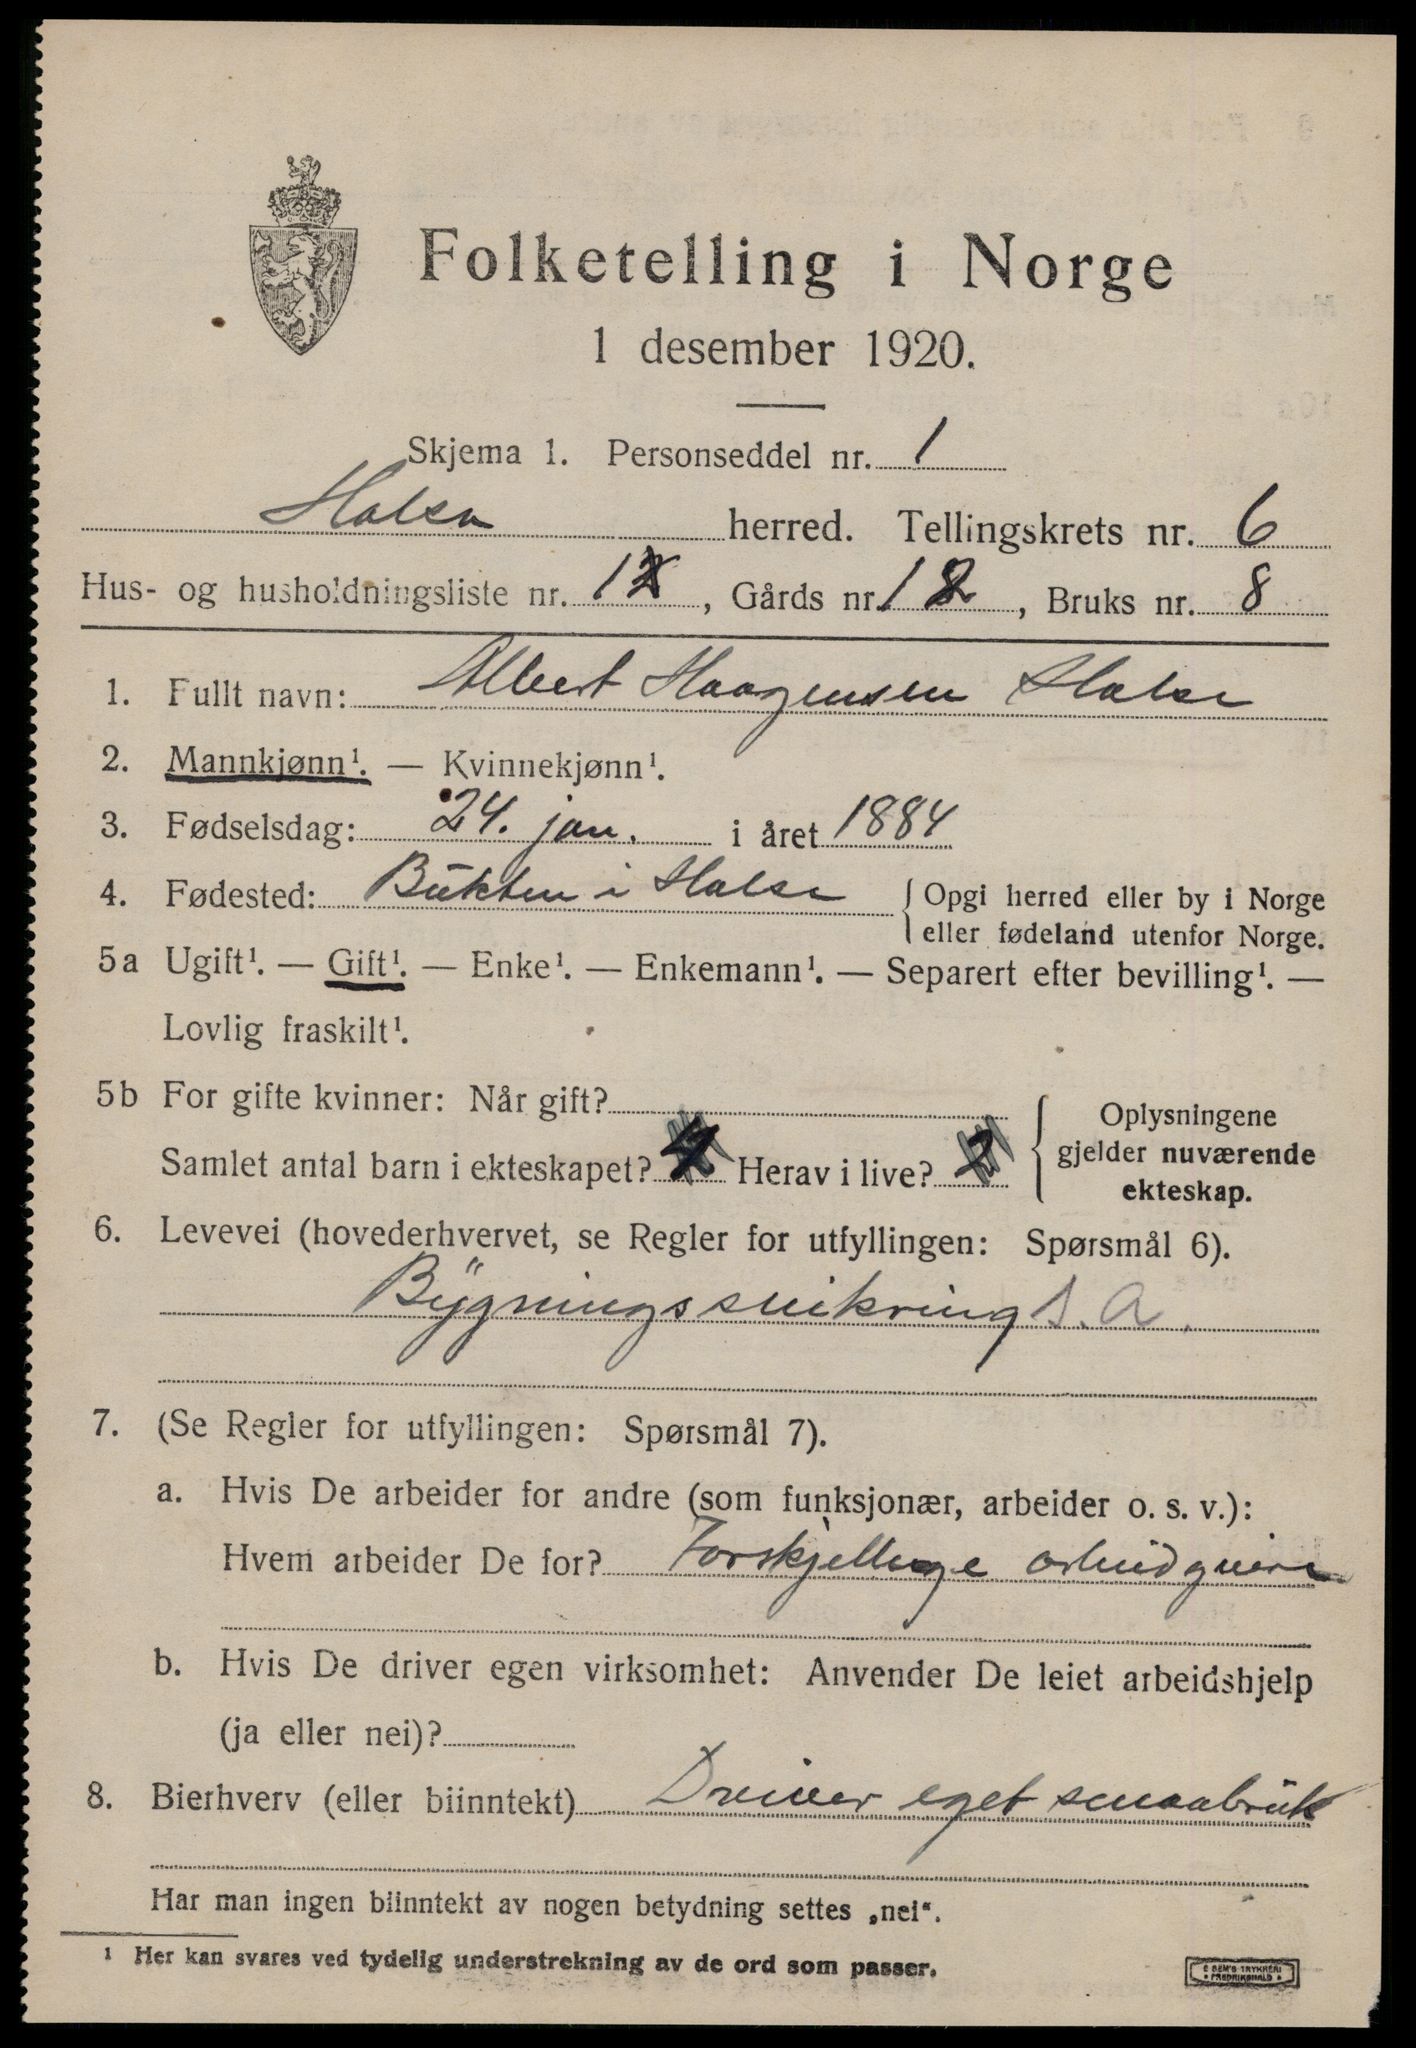 Folketelling i Norge
1 desember 1920.
Skjema 1. Personseddel nr. 1
Halsa herred. Tellingskrets nr. 6
Hus- og husholdningsliste nr. 12, Gårds nr. 12, Bruks nr. 8
1. Fullt navn: Albert Haagensen Halsa
2. Mannkjønn¹. — Kvinnekjønn¹.
3. Fødselsdag: 24. jan. i året 1884
4. Fødested: Bukten i Halsa { Opgi herred eller by i Norge
eller fødeland utenfor Norge.
5a Ugift¹. — Gift¹. — Enke¹. — Enkemann¹. — Separert efter bevilling¹. —
Lovlig fraskilt¹.
5b For gifte kvinner: Når gift?
Samlet antal barn i ekteskapet? Herav i live? 2
{ Oplysningene
gjelder nuværende
ekteskap.
6. Levevei (hovederhvervet, se Regler for utfyllingen: Spørsmål 6).
Bygningssnikring S. A.
7. (Se Regler for utfyllingen: Spørsmål 7).
a. Hvis De arbeider for andre (som funksjonær, arbeider o. s. v.):
Hvem arbeider De for? Forskjellige
b. Hvis De driver egen virksomhet: Anvender De leiet arbeidshjelp
(ja eller nei)?
8. Bierhverv (eller biinntekt) Driver eget smaabruk
Har man ingen biinntekt av nogen betydning settes „nei“.
¹ Her kan svares ved tydelig understrekning av de ord som passer.
E SEM'S TRYKKERI
FREDRIKSHALD